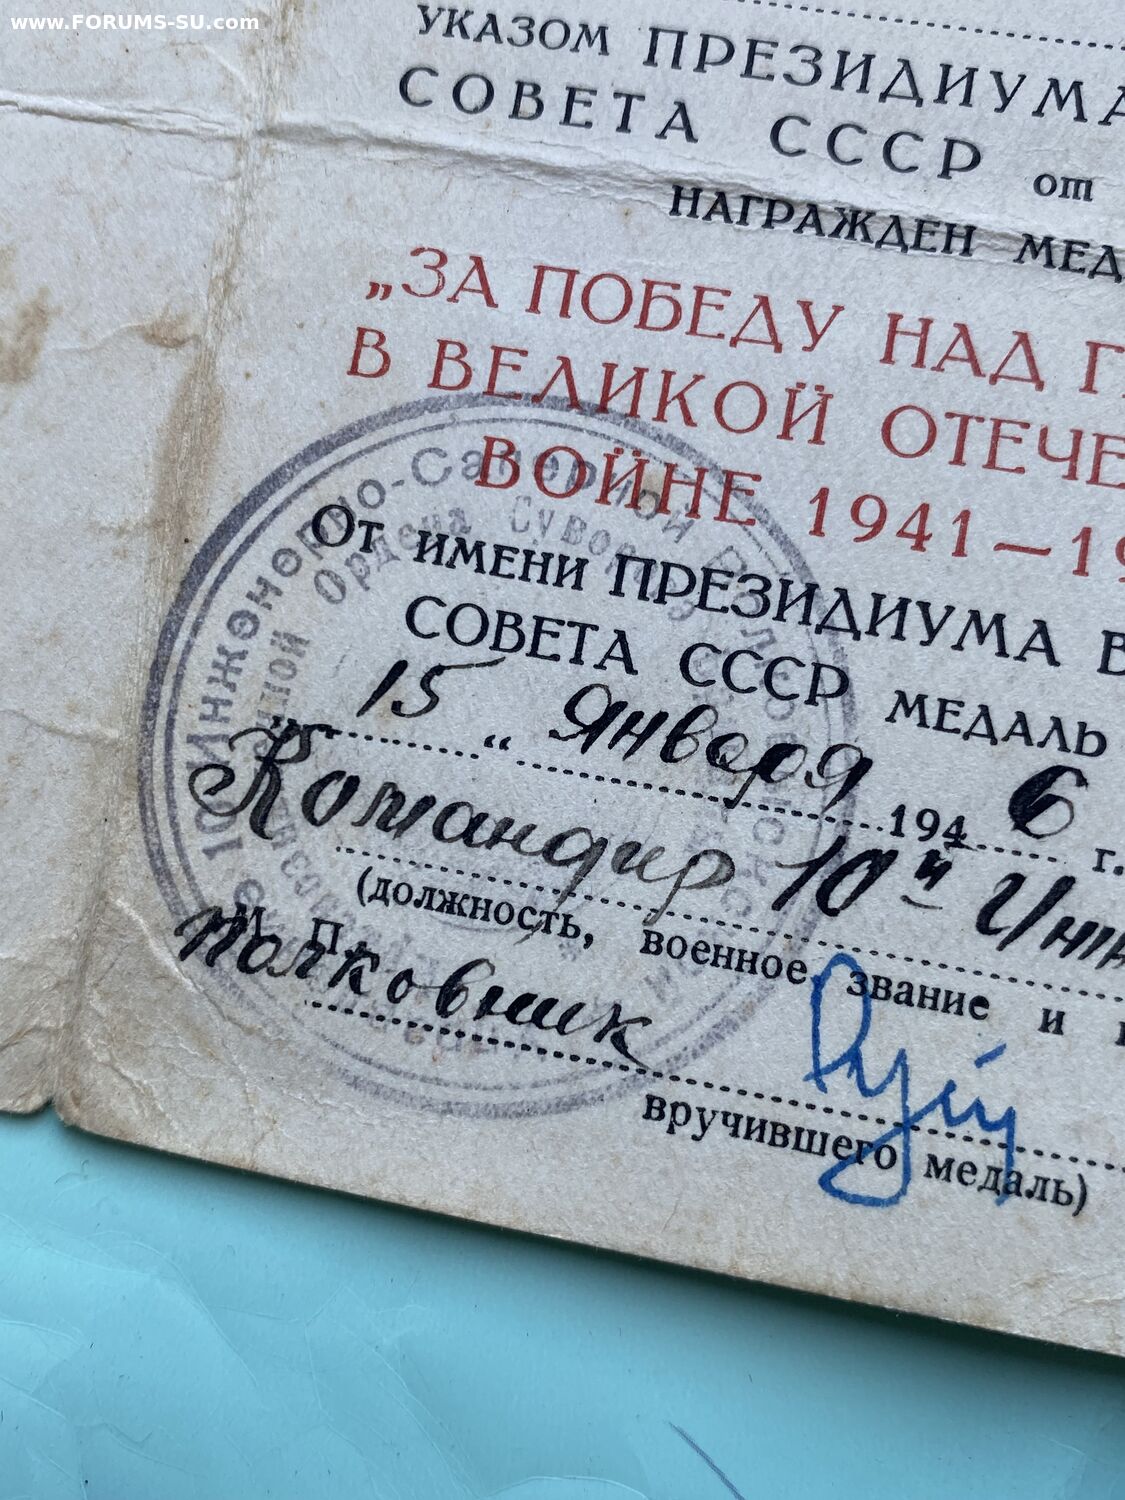 www.FORUMS-SU.com
УКАЗОМ ПРЕЗИДИУМА
СОВЕТА СССР от
НАГРАЖДЕН МЕД
„ЗА ПОБЕДУ НАД Г
В ВЕЛИКОЙ ОТЕЧЕ
ВОЙНЕ 1941—19
От имени ПРЕЗИДИУМА В
СОВЕТА СССР МЕДАЛЬ
„15“ января 1946 г.
Командир 10й Инж
(должность, военное звание и
М. П.
полковник
вручившего медаль)
10 Инженерно-Саперной
Ордена Суворова